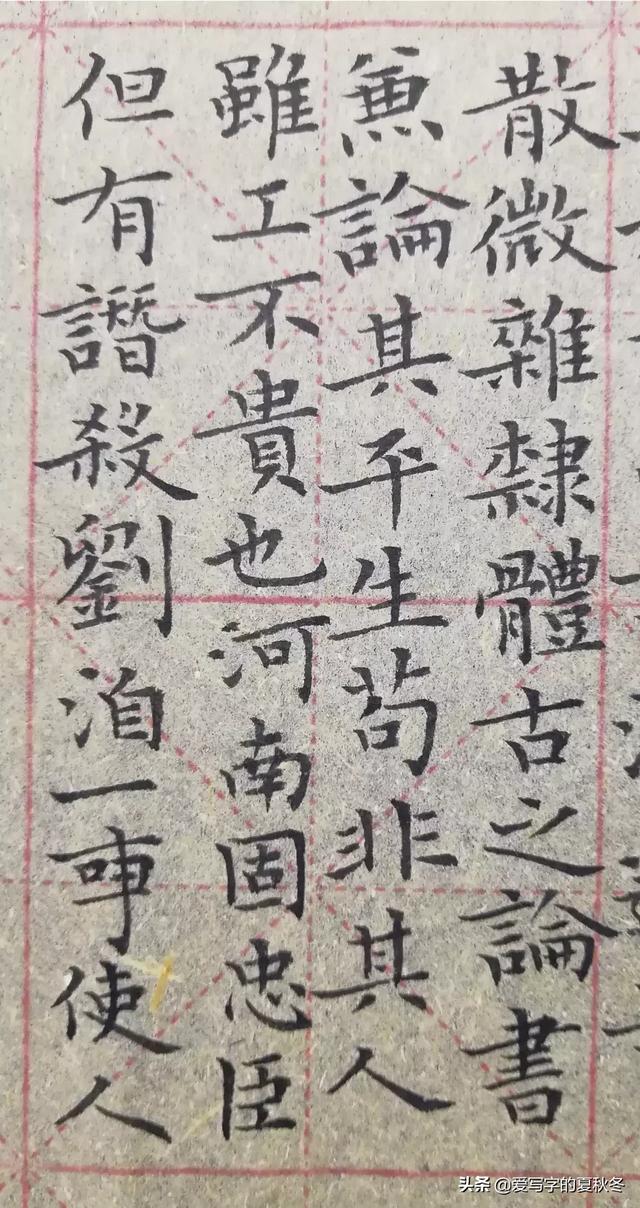 散微雜隸體古之論書
兼論其平生苟非其人
雖工不貴也河南固忠臣
但有譖殺劉洎一事使人
头条 @爱写字的夏秋冬